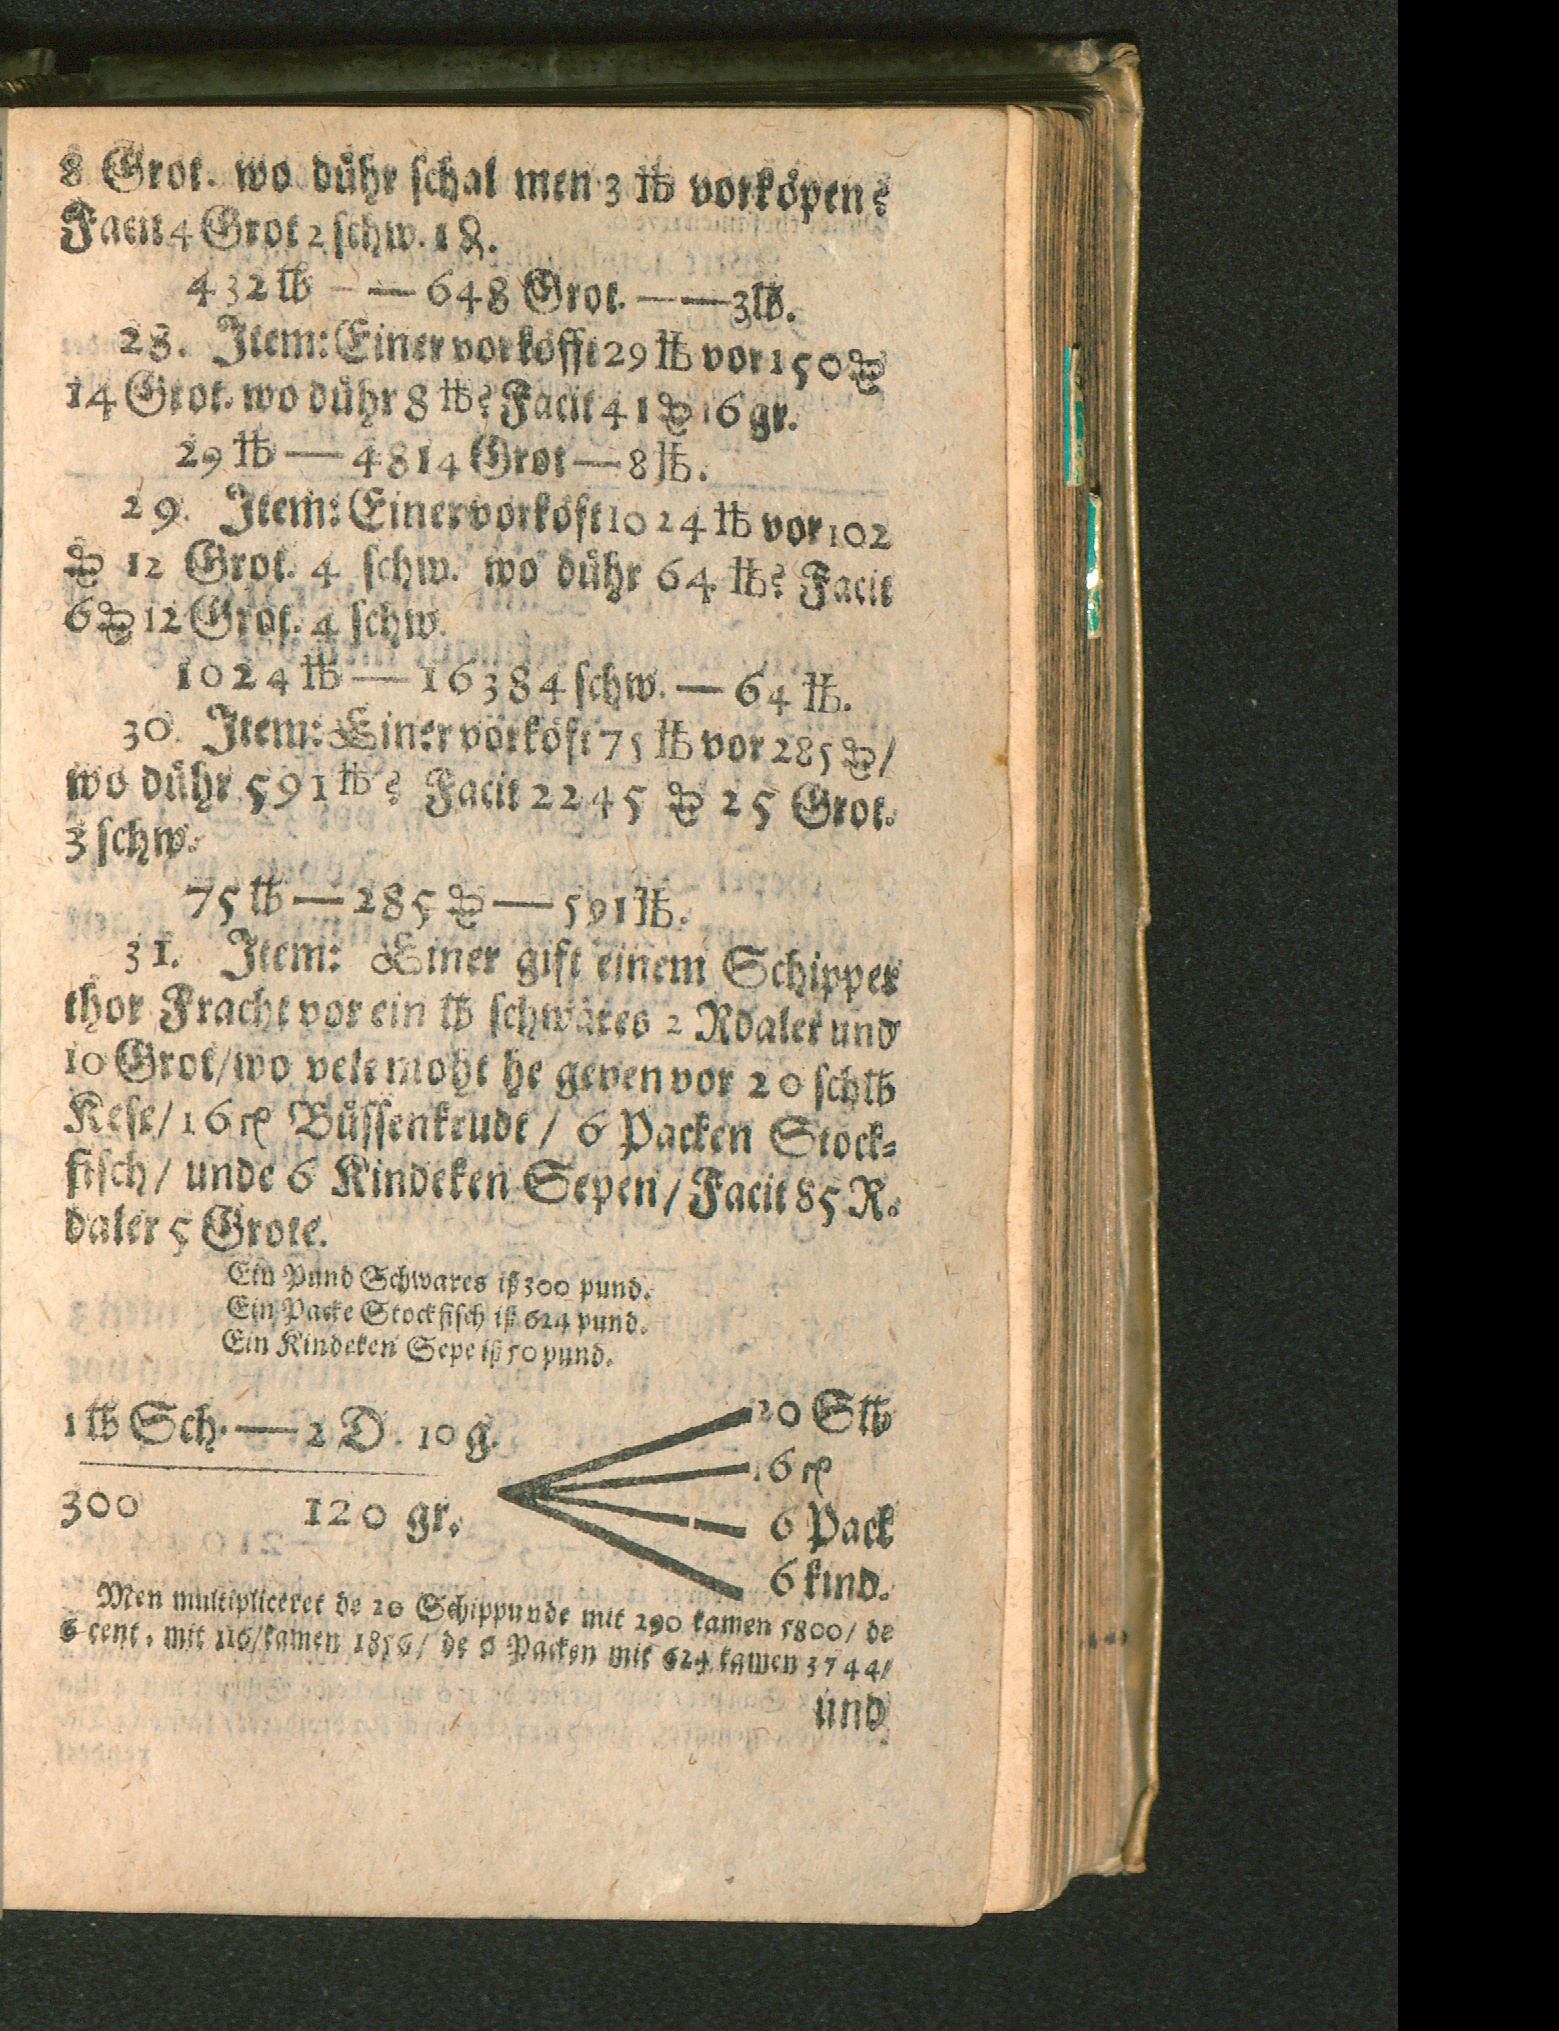 8 Grot. wo dühr schal men 3 ℔ vorköpen?
Facit 4 Grot 2 schw. 1 ₰.
432 ℔ — — 648 Grot. — — 3 ℔.
28. Item: Einer vorköfft 29 ℔ vor 150 ₻
14 Grot. wo dühr 8 ℔? Facit 41 ₻ 16 gr.
29 ℔ — 4814 Grot — 8 ℔.
29. Item: Einer vorköft 1024 ℔ vor 102
₻ 12 Grot. 4 schw. wo dühr 64 ℔? Facit
6 ₻ 12 Grot. 4 schw.
1024 ℔ — 16384 schw. — 64 ℔.
30. Item: Einer vorköft 75 ℔ vor 285 ₻/
wo dühr 591 ℔? Facit 2245 ₻ 25 Grot.
3 schw.
75 ℔ — 285 ₻ — 591 ℔.
31. Item: Einer gift einem Schipper
thor Fracht vor ein ℔ schwäres 2 Rdaler und
10 Grot/ wo vele moht he geven vor 20 sch℔
Kese/ 16 Büssenkrudt / 6 Packen Stock⸗
fisch/ unde 6 Kindeken Sepen/ Facit 85 R.
daler 5 Grote.
Ein Pund Schwares iß 300 pund.
Ein Packe Stockfisch iß 624 pund.
Ein Kindeken Sepe iß 50 pund.
1 ℔ Sch. — 2 D. 10 g.
300 120 gr.
20 S℔
16
6 Pack
6 kind.
Men multipliceret de 20 Schippunde mit 290 kamen 5800/ de
6 cent. mit 116/ kamen 1856/ de 6 Packen mit 624 kamen 3744/
und